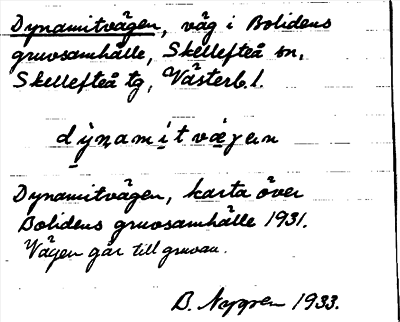 Dynamitvägen, väg i Bolidens
gruvsamhälle, Skellefteå sn,
Skellefteå tg, Västerb. l.
dynamitvægen
Dynamitvägen, karta över
Bolidens gruvsamhälle 1931.
Vägen går till gruvan.
B. Nygren 1933.